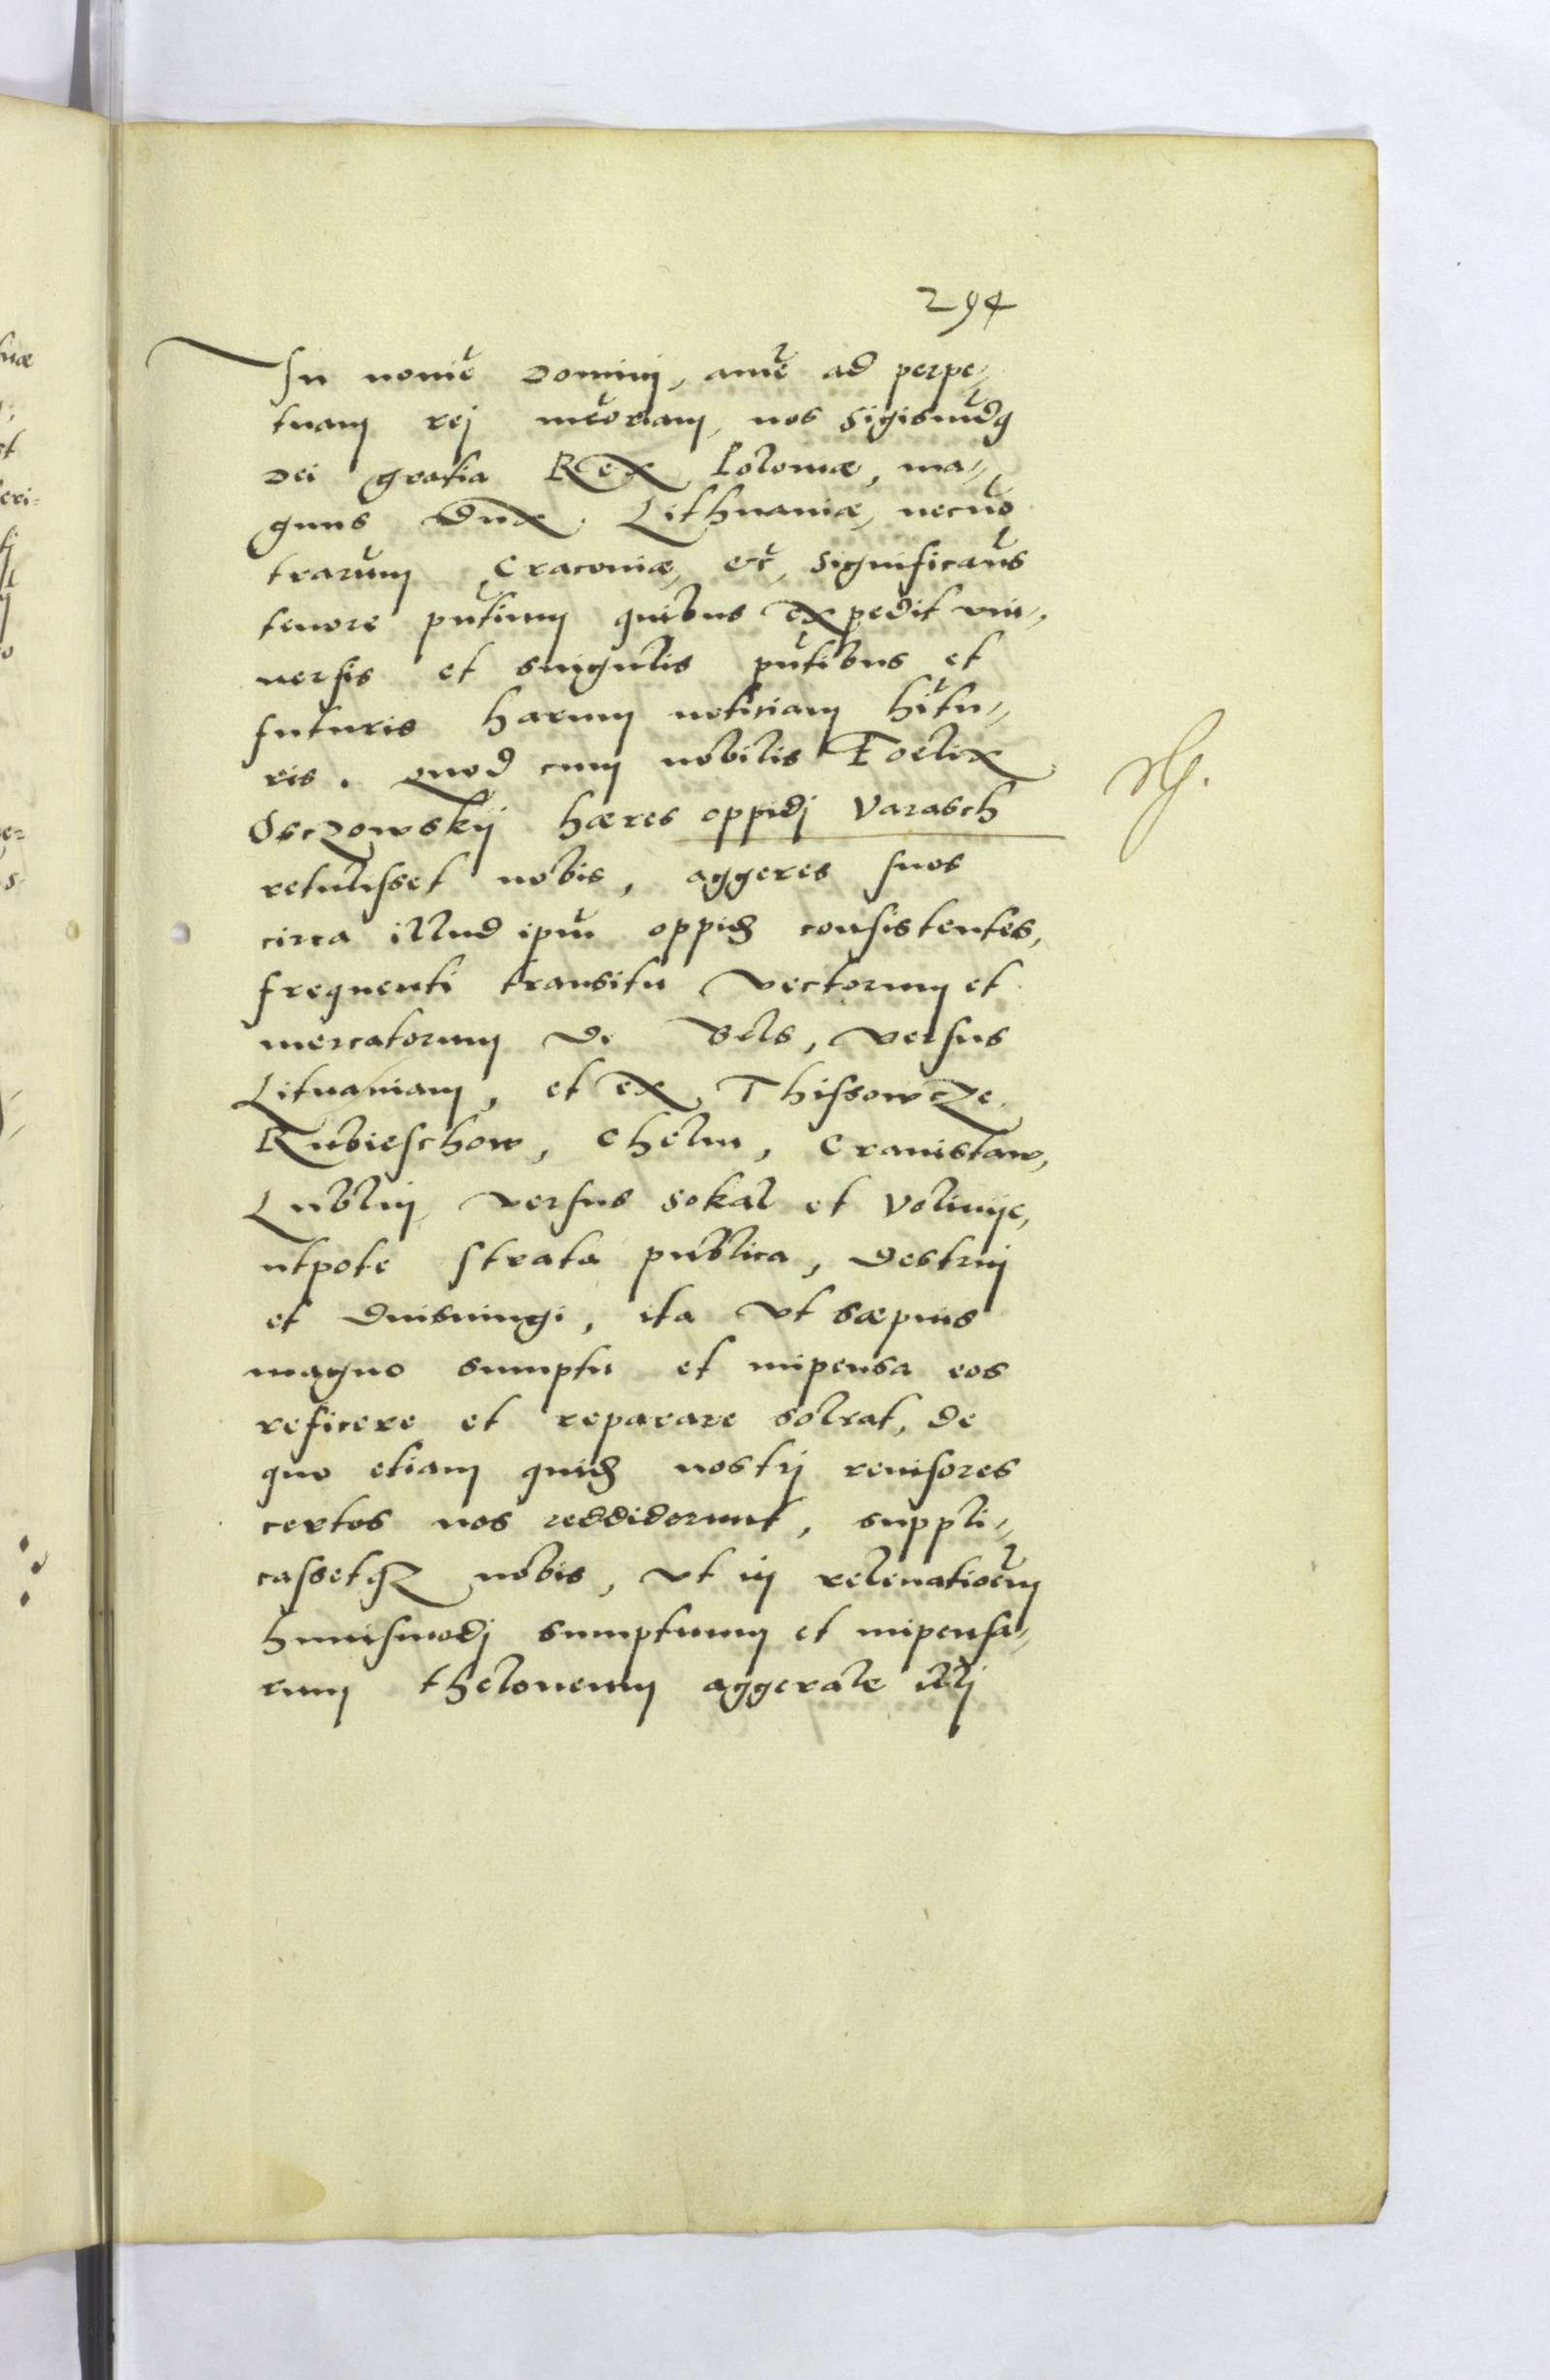 294
In nomīe Dominj, amē ad perpe-
tuam rej mēoriam, nos Sigismūdꝯ
Dei gratia Rex Poloniæ, ma-
gnus Dux Lithuaniæ, necnō
trarum̄ Craconiæ, etc̄, significam̄s
tenore pn̄tium quibus expedit vni-
uersis et singulis pn̄tibus et
futuris harum notitiam hītu-
ris. Quod cum nobilis Foelix
Osczowskij hæres oppidj Varasch
retulisset nobis, aggeres suos
circa illud ipm̄ oppid̄ consistentes,
frequenti transitu vectorum et
mercatorum de Bels, versus
Lituaniam, et ex Thissowcze
Rubieschow, Chelm, Cranistaw,
Lublin versus Sokal et Volinije,
utpote strata publica, destruj
et Duisningi, ita vt sæpius
magno sumptu et impensa eos
reficere et reparare soleat, de
quo etiam quid̄ nostrj reuisores
certos nos reddiderunt, suppli-
cassetqꝫ nobis, vt in releuatioēm
huiusmodj sumptuum et impensa-
rum theloneum aggerale illj